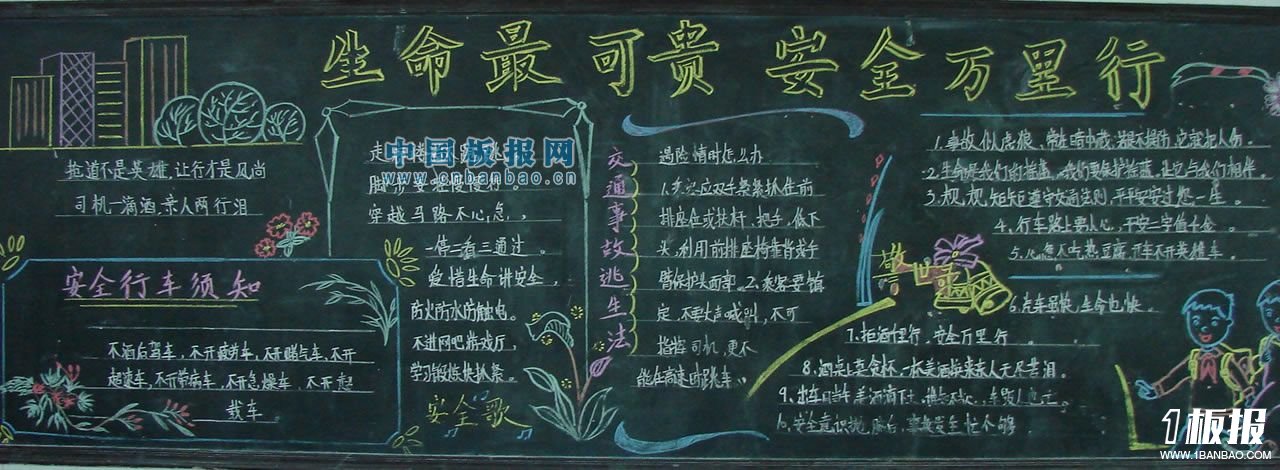 生命最可贵 安全万里行
抢道不是英雄,让行才是风尚
司机一滴酒,亲人两行泪
安全行车须知
不酒后驾车,不开疲劳车,不开赌气车,不开
超速车,不开带病车,不开急燥车 不开超
载车
中国板报网
www.cnbanbao.cn
走
脚步
穿越马路不心急,
一停二看三通过。
爱惜生命讲安全,
防火防水防触电。
不进网吧游戏厅,
学习锻炼快抓紧。
安全歌
交通事故逃生法
遇险情时怎么办
1.应双手紧紧抓住前
排座位或扶杆、把手,低下
头,利用前排座椅靠背或手
臂保护头面部。2.乘客要镇
定,不要大声喊叫,不可
指挥司机,更不
能在高速时跳车。
警世
1.事故似虎狼,常在暗中藏,
2.生命是我们的摇篮,我们要保护摇篮,让它与我们相伴。
3.规规矩矩遵守交通法则,平平安安过您一生。
4.行车路上要小心,平安二字值千金。
5.心急不吃热豆腐,开车不开英雄车。
6.汽车虽快,生命也快。
7.拒酒十里行,安全万里行。
8.酒桌上莫贪杯,一杯美酒
9.出车时
10.安全意识
1板报
WWW.1BANBAO.COM